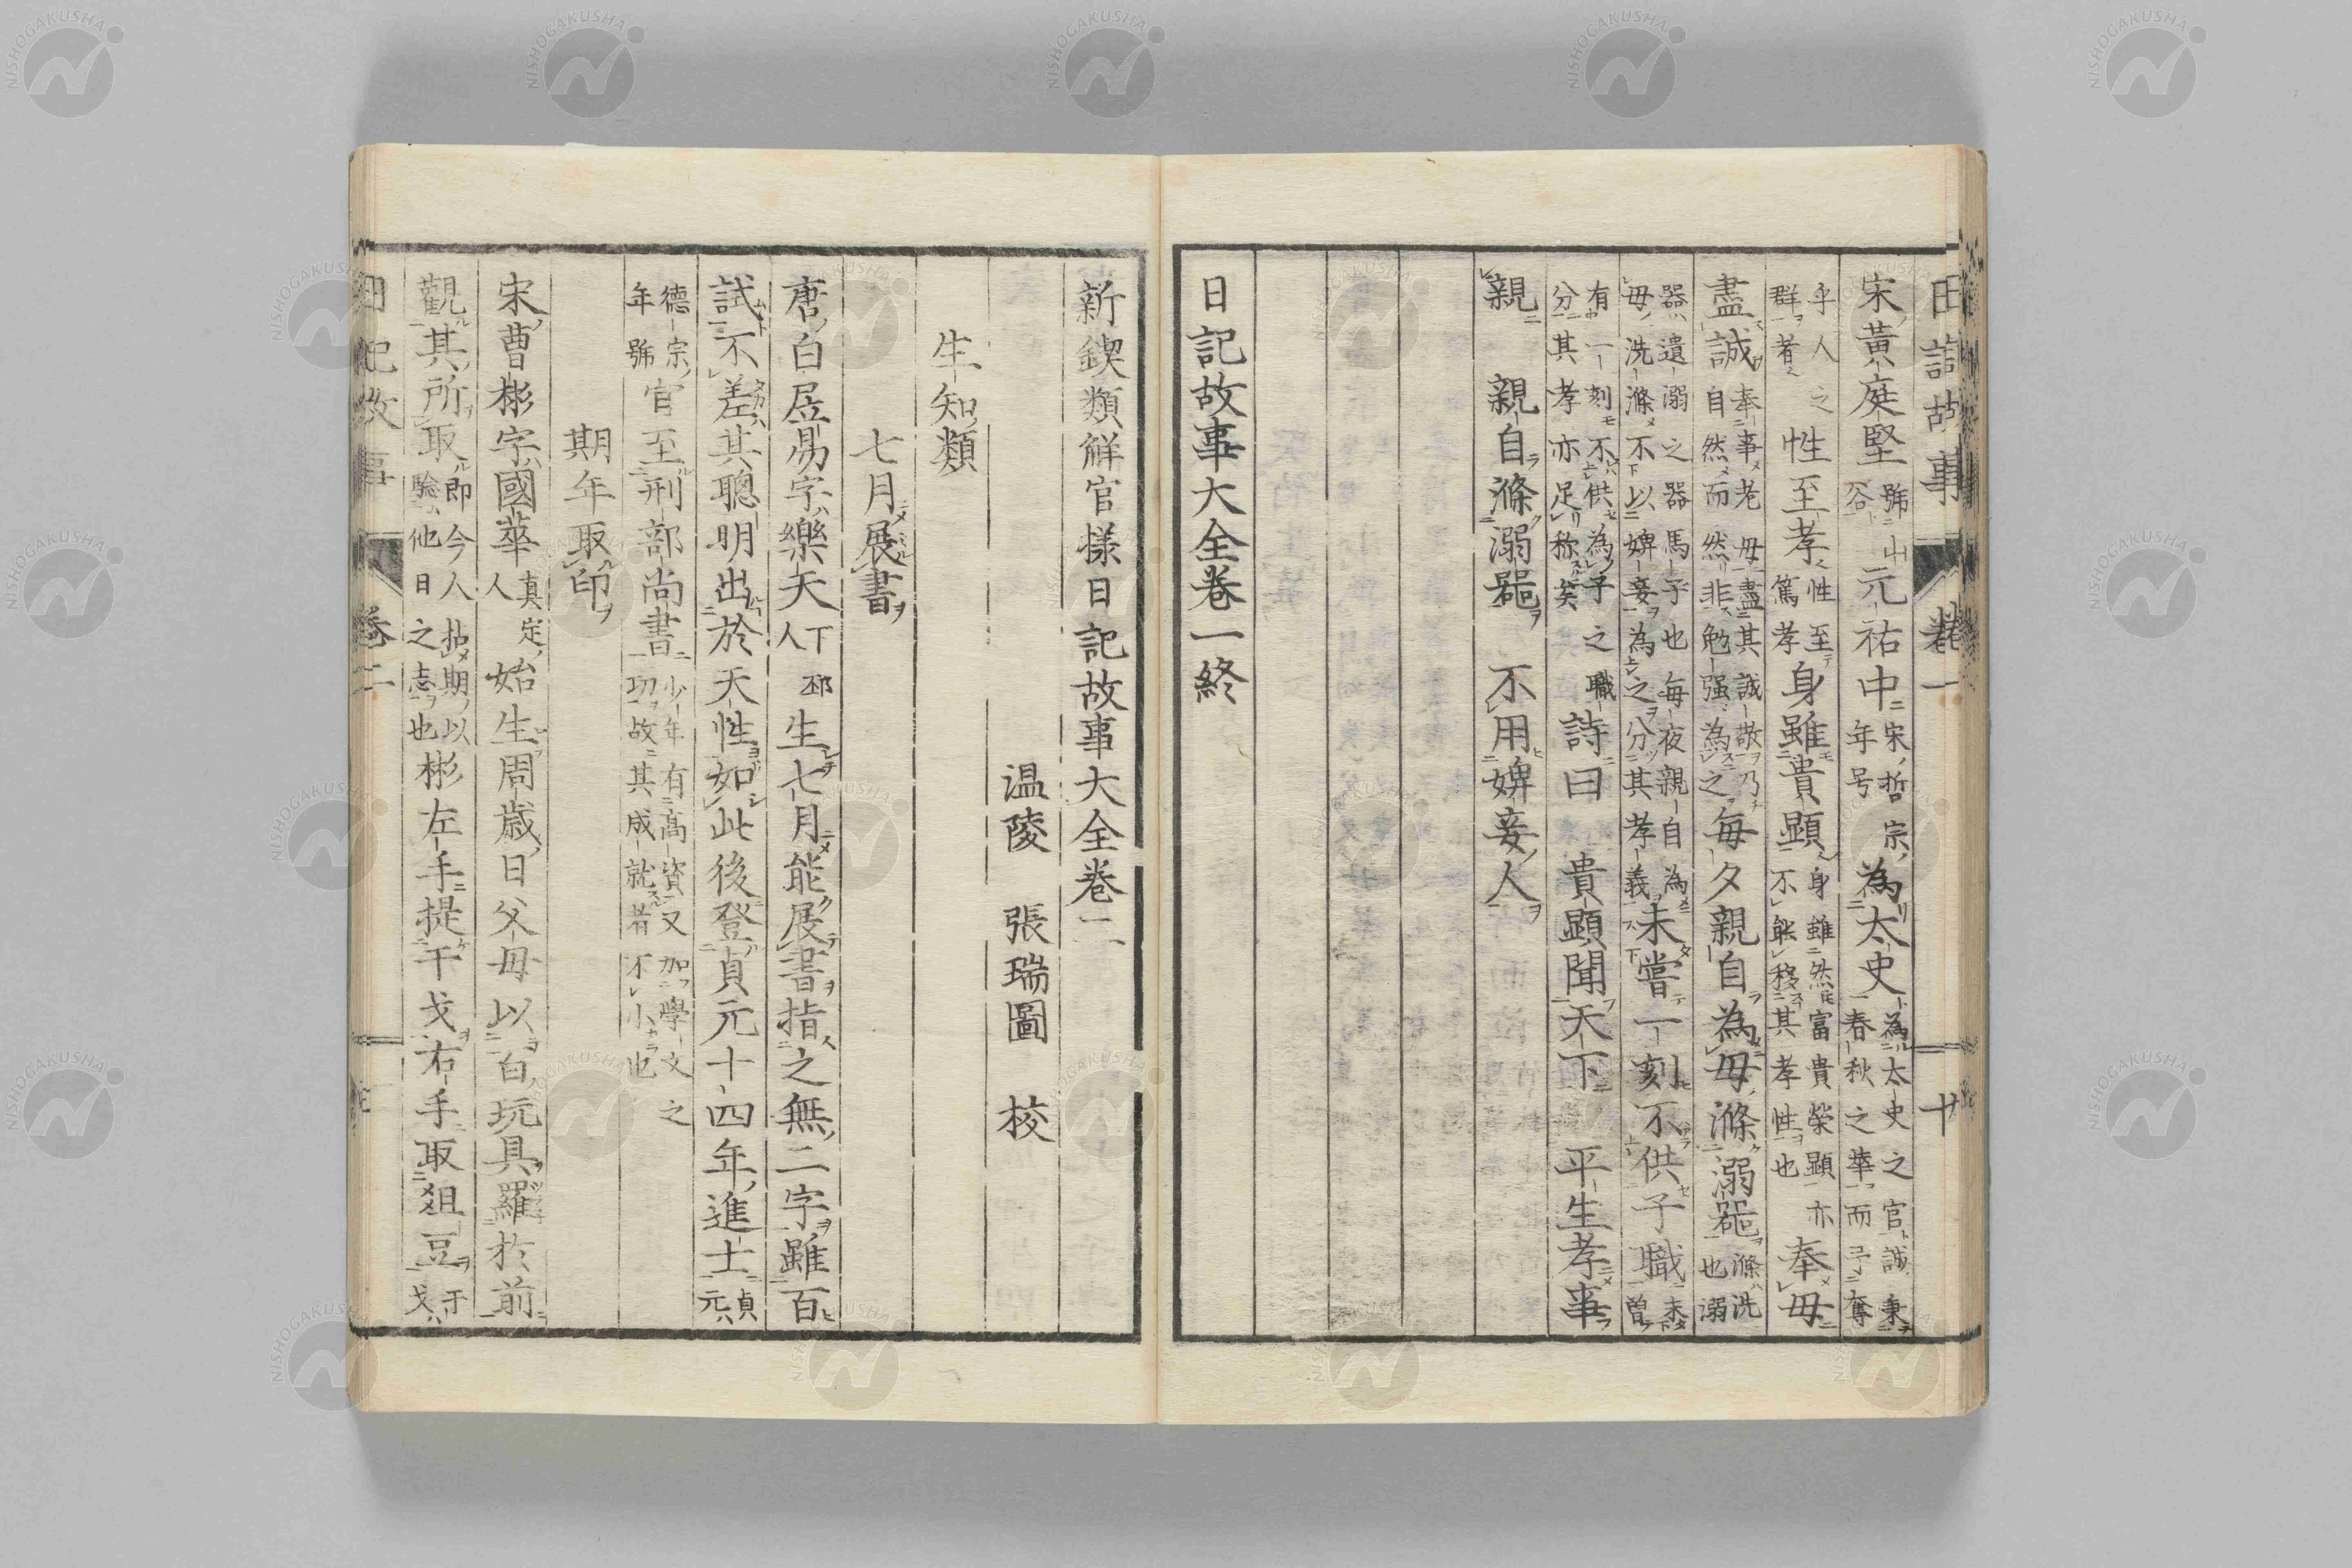 日記故事 卷一 十
宋黃庭堅號山谷元祐中宋哲宗年号為太史為太史之官誠秉春秋之華而予奪
乎人之群者性至孝性至篤孝身雖貴顯身雖然富貴榮顯亦不能移其孝性也奉母
盡誠奉事老母盡其誠敬乃自然而然非勉强為之每夕親自為母滌溺器滌洗也溺
器遺溺之器馬子也每夜親自為母洗滌不以婢妾為之分其孝義未嘗一刻不供子職未曽
有一刻不供為子之職分其孝亦足称矣詩曰 貴顯聞天下 平生孝事
親 親自滌溺器 不用婢妾人
日記故事大全卷一終
新鍥類觧官様日記故事大全卷二
温陵 張瑞圖 校
生知類
七月展書
唐白居易字樂天下邳人生七月能展書指之無二字雖百
試不差其聰明出於天性如此後登貞元十四年進士貞元
德宗年號官至刑部尚書少年有高資又加學文之功故其成就者不小也
期年取印
宋曹彬字國華真定人始生周歲日父母以百玩具羅於前
觀其所取即今人拈期以驗他日之志也彬左手提干戈右手取俎豆于戈
日記故事 卷二